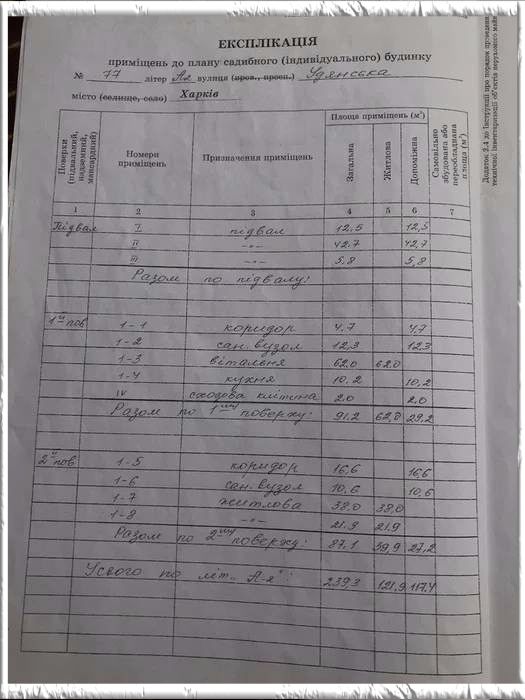 ЕКСПЛІКАЦІЯ
приміщень до плану садибного (індивідуального) будинку
№ 77 літер А2 вулиця (пров., просп.) Удянська
місто (селище, село) Харків
Поверхи (підвальний, надземний, мансардний) Номери приміщень Призначення приміщень Площа приміщень (м²) Загальна Житлова Допоміжна Самовільно збудована або переобладнана площа (м²)
1 2 3 4 5 6 7
Підвал I підвал 12,5 12,5
II -"- 42,7 42,7
III -"- 5,8 5,8
Разом по підвалу:
1й пов 1-1 коридор 4,7 4,7
1-2 сан. вузол 12,3 12,3
1-3 вітальня 62,0 62,0
1-4 кухня 10,2 10,2
IV сходова клітина 2,0 2,0
Разом по 1му поверху: 91,2 62,0 29,2
2й пов 1-5 коридор 16,6 16,6
1-6 сан. вузол 10,6 10,6
1-7 житлова 38,0 38,0
1-8 -"- 21,9 21,9
Разом по 2му поверху: 87,1 59,9 27,2
Усього по літ. "А-2": 239,3 121,9 117,4
Додаток 2.4 до Інструкції про порядок проведення
технічної інвентаризації об'єктів нерухомого майна